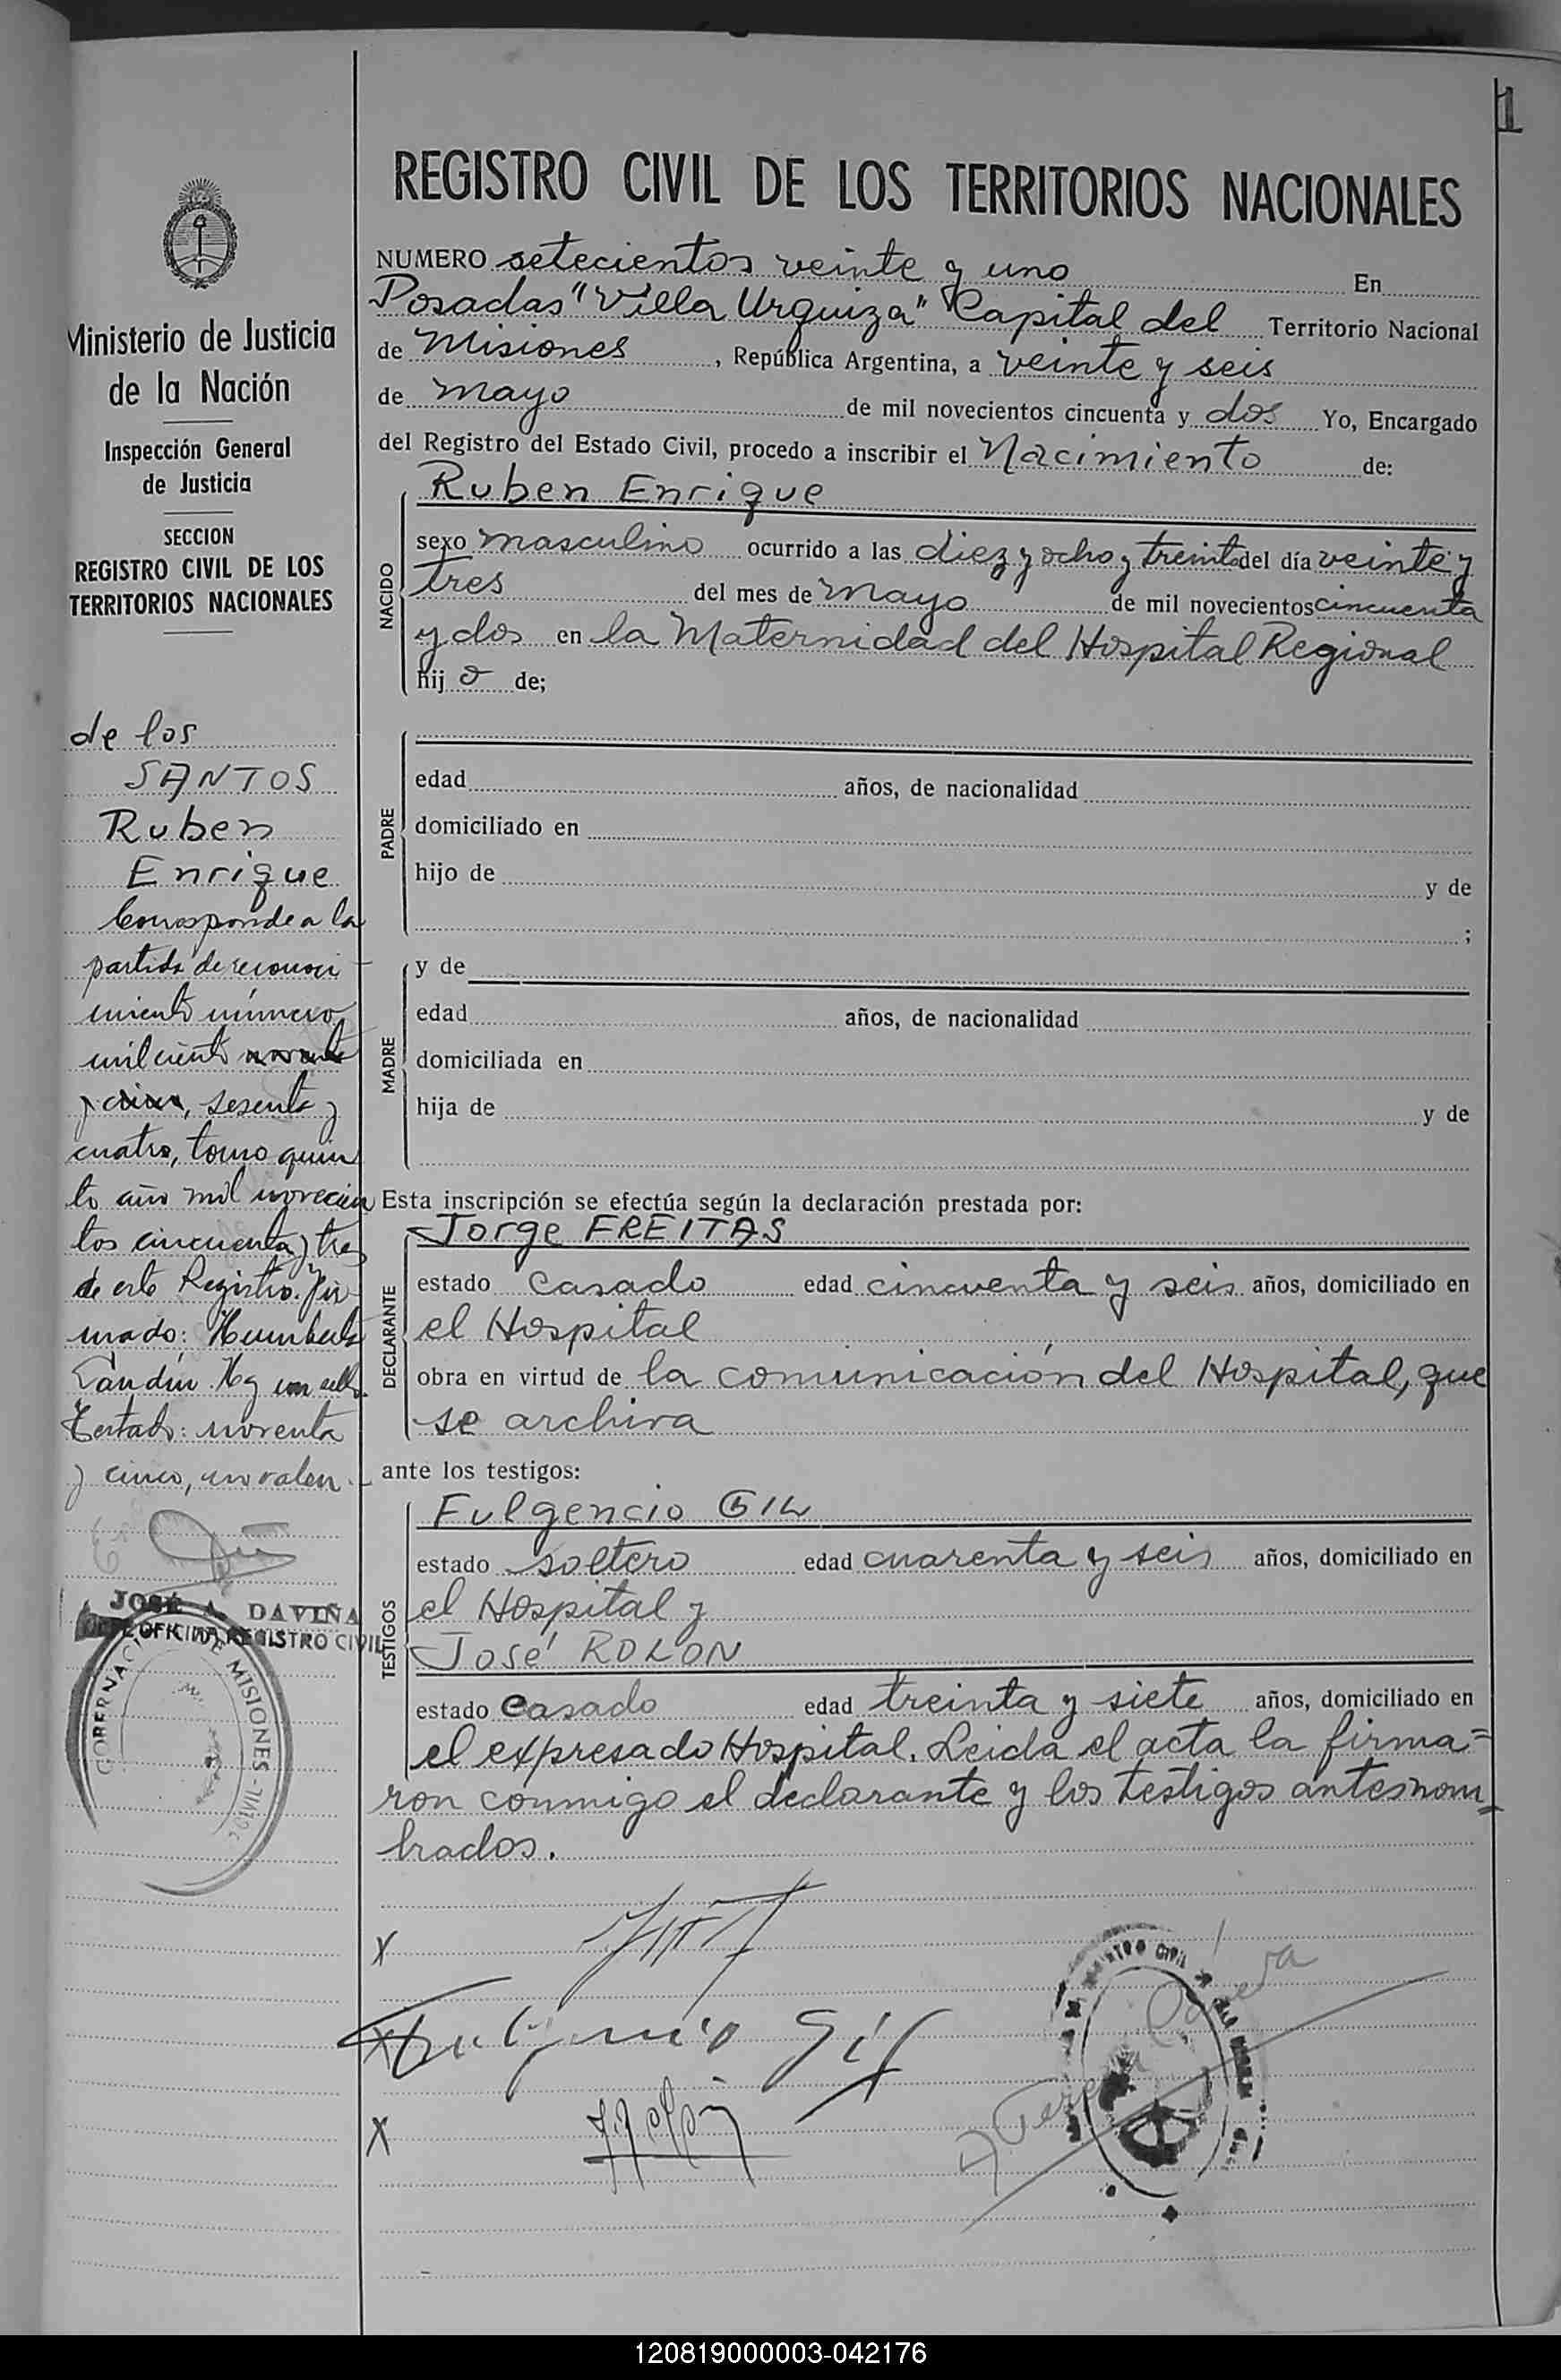 1
REGISTRO CIVIL DE LOS TERRITORIOS NACIONALES
NUMERO setecientos veinte y uno En
Posadas "Villa Urquiza" Capital del Territorio Nacional
de Misiones, República Argentina, a veinte y seis
de mayo de mil novecientos cincuenta y dos Yo, Encargado
del Registro del Estado Civil, procedo a inscribir el Nacimiento de:
NACIDO
Ruben Enrique
sexo masculino ocurrido a las diez y ocho y treinta del día veinte y
tres del mes de mayo de mil novecientos cincuenta
y dos en la Maternidad del Hospital Regional
hij o de;
PADRE
edad años, de nacionalidad
domiciliado en
hijo de y de
;
MADRE
y de
edad años, de nacionalidad
domiciliada en
hija de y de
Esta inscripción se efectúa según la declaración prestada por:
DECLARANTE
Jorge FREITAS
estado casado edad cincuenta y seis años, domiciliado en
el Hospital
obra en virtud de la comunicación del Hospital, que
se archiva
ante los testigos:
TESTIGOS
Fulgencio GIL
estado soltero edad cuarenta y seis años, domiciliado en
el Hospital y
José ROLON
estado casado edad treinta y siete años, domiciliado en
el expresado Hospital. Leida el acta la firma=
ron conmigo el declarante y los testigos antesnom=
brados.
x
x Fulgencio Gil
x
Ministerio de Justicia
de la Nación
Inspección General
de Justicia
SECCION
REGISTRO CIVIL DE LOS
TERRITORIOS NACIONALES
de los
SANTOS
Ruben
Enrique
Corresponde a la
partida de reconoci
miento número
mil ciento noventa
y cinco, sesenta y
cuatro, tomo quin
to año mil novecien
tos cincuenta y tres
de este Registro. Fir
mado: Humberto
Landin. Hay un sello
Testado: noventa
y cinco, no valen.-
JOSÉ A. DAVIÑA
JEFE OFICINA REGISTRO CIVIL
GOBERNACION DE MISIONES
120819000003-042176